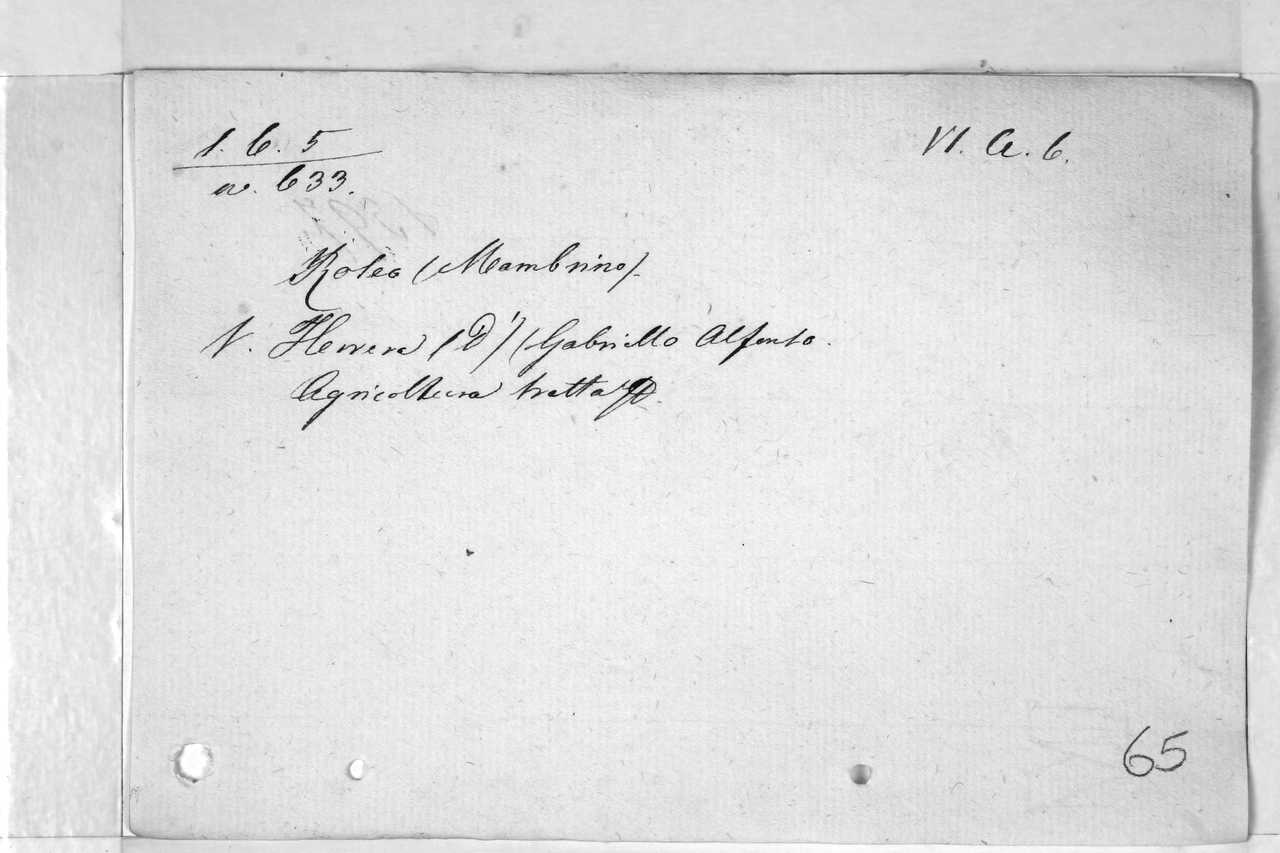 1. 6. 5
no. 633.
VI. a. 6.
Roseo (Mambrino).
V. Herrera (D') (Gabriello Alfonso.
Agricoltura tratta
65